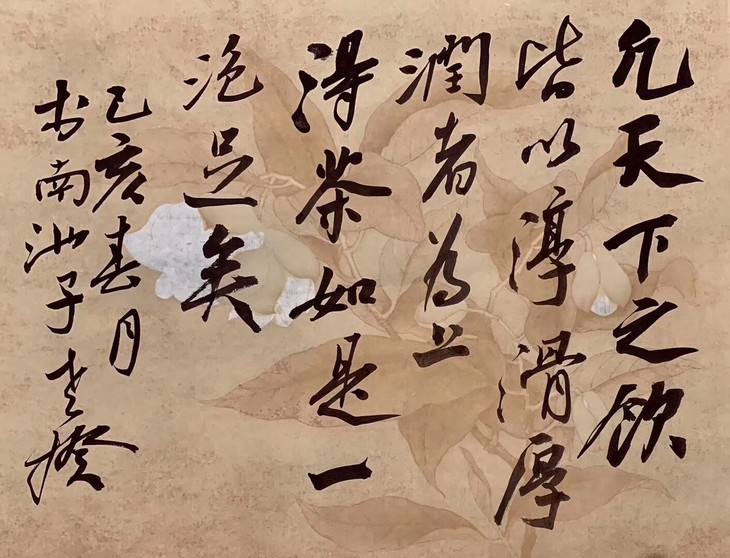 凡天下之飲
皆以淳滑厚
潤者為上
得茶如是一
泡足矣
己亥春月
於南池子老揆